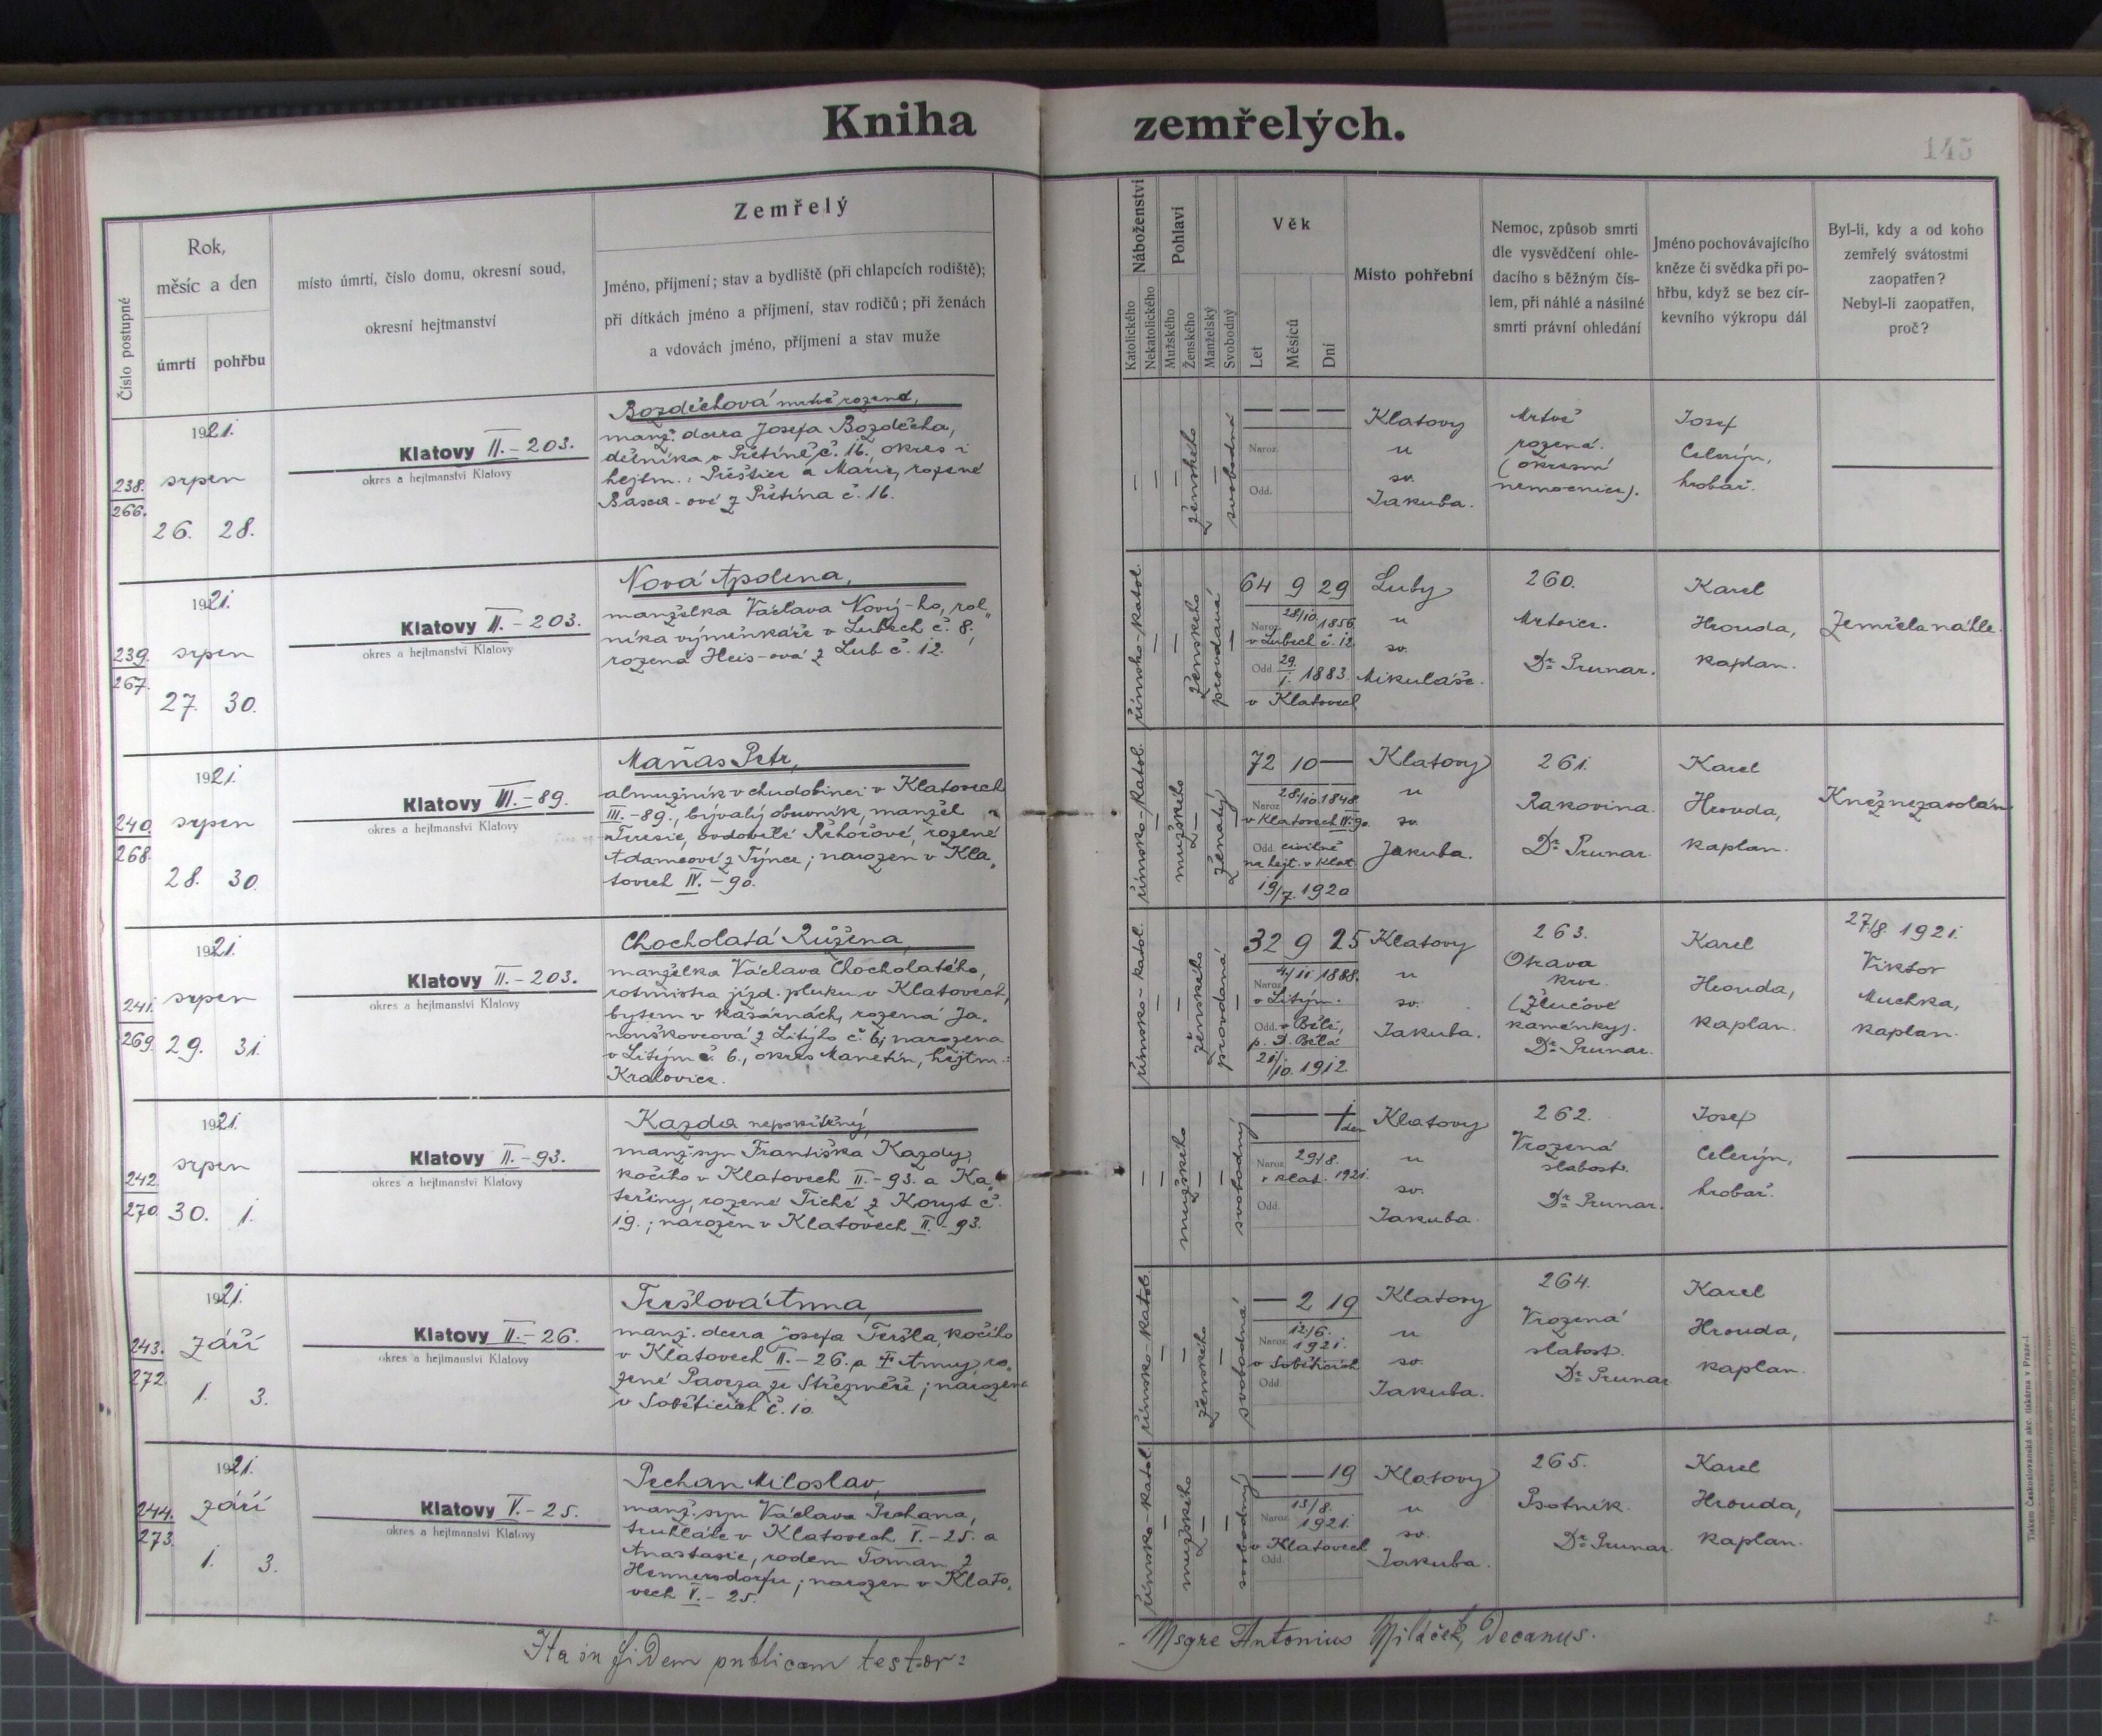 Kniha zemřelých.
145
Číslo postupné
Rok,
měsíc a den
úmrtí
pohřbu
místo úmrtí, číslo domu, okresní soud,
okresní hejtmanství
Zemřelý
Jméno, příjmení; stav a bydliště (při chlapcích rodiště);
při dítkách jméno a příjmení, stav rodičů; při ženách
a vdovách jméno, příjmení a stav muže
Náboženství
Katolického
Nekatolického
Pohlaví
Mužského
Ženského
Manželský
Svobodný
Věk
Let
Měsíců
Dní
Místo pohřební
Nemoc, způsob smrti
dle vysvědčení ohle-
dacího s běžným čís-
lem, při náhlé a násilné
smrti právní ohledání
Jméno pochovávajícího
kněze či svědka při po-
hřbu, když se bez cír-
kevního výkropu dál
Byl-li, kdy a od koho
zemřelý svátostmi
zaopatřen?
Nebyl-li zaopatřen,
proč?
238.
266.
1921.
srpen
26. 28.
Klatovy II. - 203.
okres a hejtmanství Klatovy
Bozděchová mrtvě rozená,
manž. dcera Josefa Bozděcha,
dělníka v Přetíně č. 16., okres i
hejtm.: Přeštice a Marie, rozené
z Přetína č. 16.
ženského
svobodná
— — —
Naroz.
Odd.
Klatovy
u
sv.
Jakuba.
Mrtvě
rozená.
(okresní
nemocnice).
Josef
Celerýn,
hrobař.
239.
267.
1921.
srpen
27. 30.
Klatovy II. - 203.
okres a hejtmanství Klatovy
Nová Apolena,
manželka Václava Nový-ho, rol„
níka výměnkáře v Lubech č. 8,
rozená Heis-ová z Lub č. 12.
římsko-katol.
ženského
provdaná
64 9 29
Naroz. 28/10. 1856.
v Lubech č. 12.
Odd. 29./1. 1883.
v Klatovech
Luby
u
sv.
Mikuláše.
260.
Mrtvice.
Dr. Prunar.
Karel
Hrouda,
kaplan.
Zemřela náhle.
240.
268.
1921.
srpen
28. 30.
Klatovy III. - 89.
okres a hejtmanství Klatovy
Maňas Petr,
almužník v chudobinci v Klatovech
III. - 89., bývalý obuvník, manžel
Terezie, ovdovělé Řehořové, rozené
Adamcové z Týnce; narozen v Kla„
tovech IV. - 90.
římsko-katol.
mužského
ženatý
72 10 —
Naroz. 28/10. 1848.
v Klatovech IV. 90.
Odd. civilně
na hejt. v Klat.
19/7. 1920
Klatovy
u
sv.
Jakuba.
261.
Rakovina.
Dr. Prunar.
Karel
Hrouda,
kaplan.
Kněz nezavolán
241.
269.
1921.
srpen
29. 31.
Klatovy II. - 203.
okres a hejtmanství Klatovy
Chocholatá Růžena,
manželka Václava Chocholatého,
rotmistra jízd. pluku v Klatovech,
bytem v kasárnách, rozená Ja„
nouškovcová z Litýho č. 6; narozena
v Litým č. 6., okres Manetín, hejtm.:
Kralovice.
římsko-katol.
ženského
provdaná
32 9 25
Naroz. 4/11. 1888.
v Litým.
Odd. v Bělé,
p. D. Bělá
21/10. 1912.
Klatovy
u
sv.
Jakuba.
263.
Otrava
krve.
(Žlučové
kaménky).
Dr. Prunar.
Karel
Hrouda,
kaplan.
27/8. 1921.
Viktor
Muchka,
kaplan.
242.
270.
1921.
srpen
30. 1.
Klatovy II. - 93.
okres a hejtmanství Klatovy
Kazda nepokřtěný,
manž. syn Františka Kazdy,
kočího v Klatovech II. - 93. a Ka„
teřiny, rozené Tiché z Koryt č.
19.; narozen v Klatovech II. - 93.
mužského
svobodný
— — 1 den
Naroz. 29/8.
v Klat. 1921.
Odd.
Klatovy
u
sv.
Jakuba.
262.
Vrozená
slabost.
Dr. Prunar.
Josef
Celerýn,
hrobař.
243.
272.
1921.
září
1. 3.
Klatovy II. - 26.
okres a hejtmanství Klatovy
Teršlová Anna,
manž. dcera Josefa Teršla, kočího
v Klatovech II. - 26. a Anny, ro„
zené Paveza ze Střezměře; narozena
v Soběticích č. 10.
římsko-katol.
ženského
svobodná
— 2 19
Naroz. 12/6.
1921.
v Soběticích
Odd.
Klatovy
u
sv.
Jakuba.
264.
Vrozená
slabost.
Dr. Prunar
Karel
Hrouda,
kaplan.
244.
273.
1921.
září
1. 3.
Klatovy V. - 25.
okres a hejtmanství Klatovy
Pechan Miloslav,
manž. syn Václava Pechana,
truhláře v Klatovech V. - 25. a
Anastasie, rodem Toman z
Hennersdorfu; narozen v Klato„
vech V. - 25.
římsko-katol.
mužského
svobodný
— — 19
Naroz. 13/8.
1921.
v Klatovech
Odd.
Klatovy
u
sv.
Jakuba.
265.
Psotník.
Dr. Prunar.
Karel
Hrouda,
kaplan.
Ita in fidem publicam testor:
Msgre Antonius Špiláček, Decanus.
Tiskem Československá akc. tiskárna v Praze.